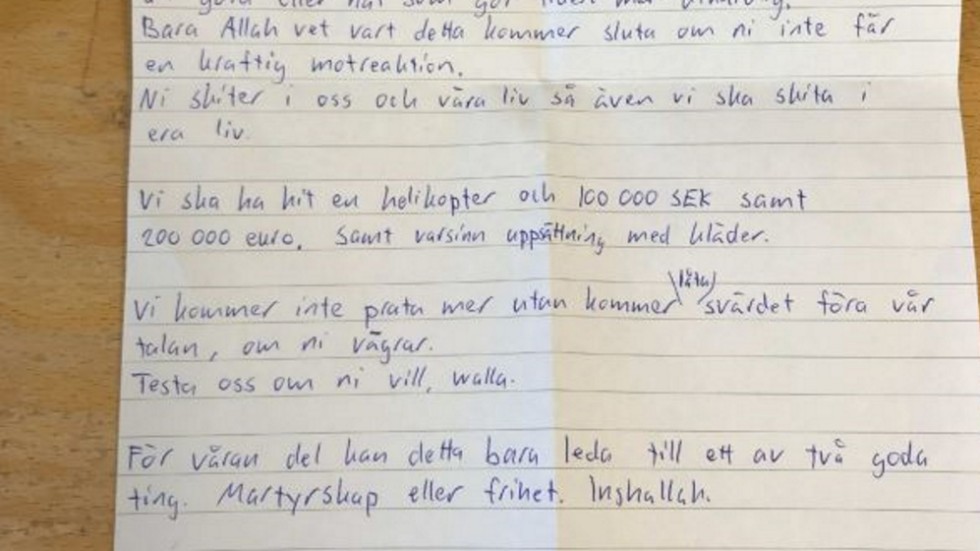 Bara Allah vet vart detta kommer sluta om ni inte får
en kraftig motreaktion.
Ni skiter i oss och våra liv så även vi ska skita i
era liv.
Vi ska ha hit en helikopter och 100 000 SEK samt
200 000 euro. Samt varsinn uppsättning med kläder.
Vi kommer inte prata mer utan kommer låta svärdet föra vår
talan, om ni vägrar.
Testa oss om ni vill, walla.
För våran del kan detta bara leda till ett av två goda
ting. Martyrskap eller frihet. Inshallah.